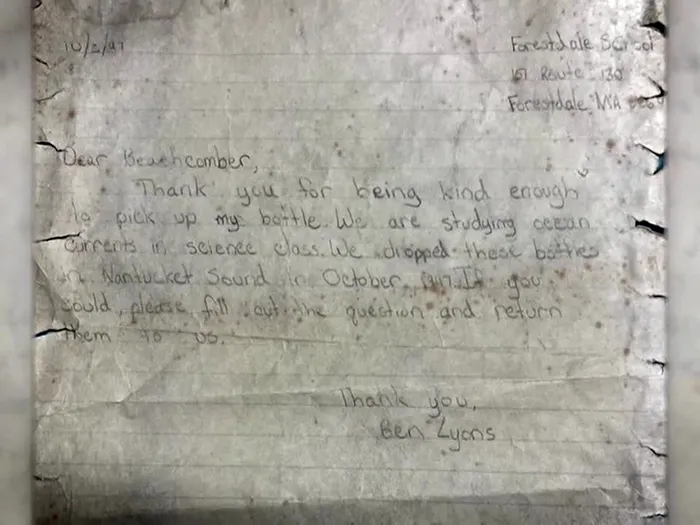 10/2/97
Forestdale School
151 Route 130
Forestdale MA
Dear Beachcomber,
Thank you for being kind enough
to pick up my bottle. We are studying ocean
currents in science class. We dropped these bottles
in Nantucket Sound in October. If you
could, please fill out the question and return
them to us.
Thank you,
Ben Lyons